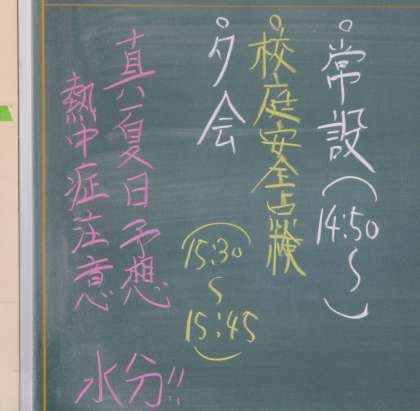 ○常設(14:50〜)
○校庭安全点検
○夕会
(15:30〜15:45)
真夏日予想
熱中症注意
水分!!